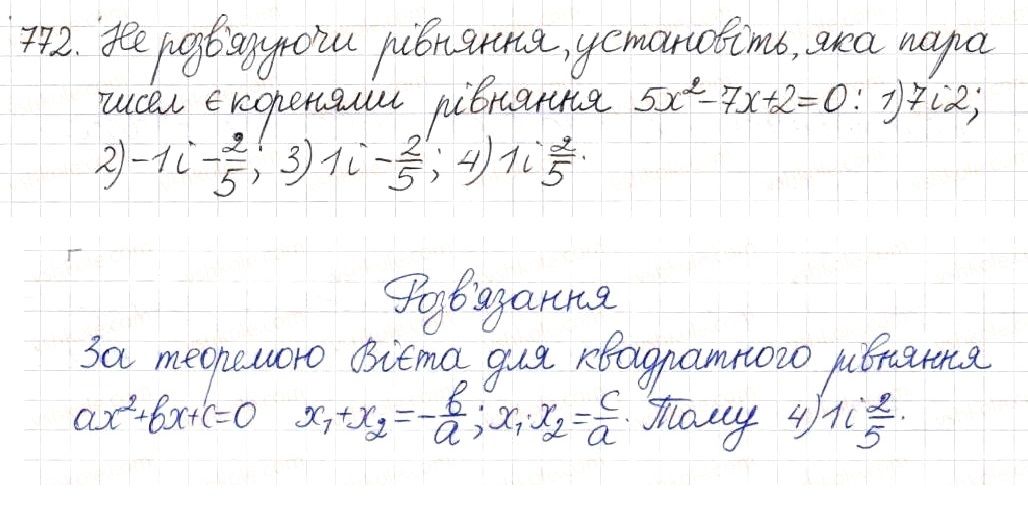 772. Не розв'язуючи рівняння, установіть, яка пара
чисел є коренями рівняння 5x²-7x+2=0: 1) 7 і 2;
2) -1 і -2/5; 3) 1 і -2/5; 4) 1 і 2/5.
Розв'язання
За теоремою Вієта для квадратного рівняння
ax²+bx+c=0 x₁+x₂=-b/a; x₁·x₂=c/a. Тому 4) 1 і 2/5.